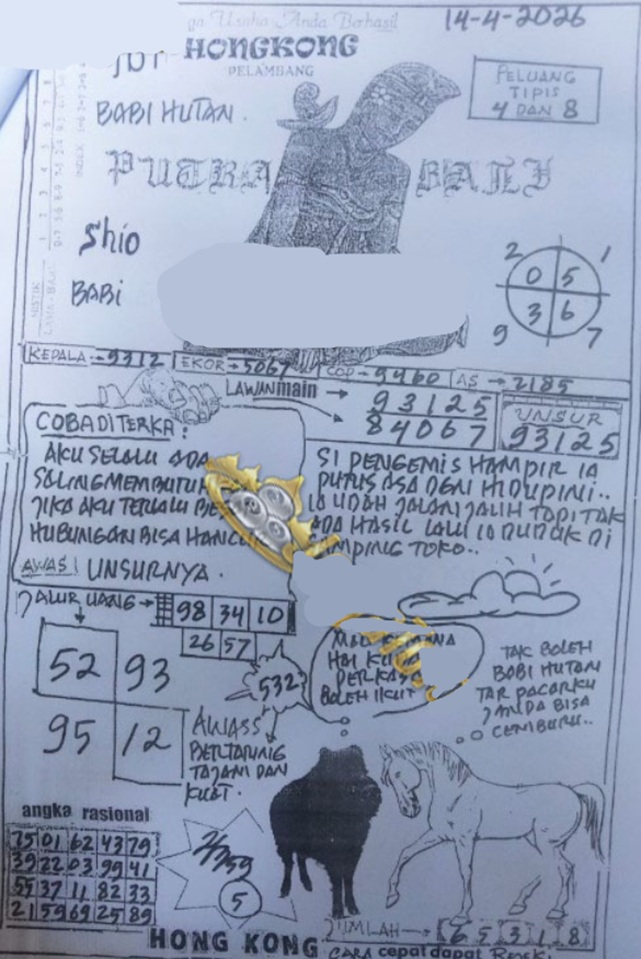 Usaha Anda Berhasil
14-4-2026
HONGKONG
PELAMBANG
PELUANG
TIPIS
4 DAN 8
BABI HUTAN.
PUTRA BALI
Shio
BABI
2 1
0 5
3 6
9 7
KEPALA → 9312 EKOR → 5067 COP → 9460 AS → 2185
LAWAN main → 93125
84067
UNSUR
93125
COBA DITERKA:
AKU SELALU ADA
SALING MEMBUTU
JIKA AKU TERLALU BE
HUBUNGAN BISA HANCU
AWAS! UNSURNYA.
SI PENGEMIS HAMPIR IA
PUTUS ASA DGN HIDUPINI..
IA UDAH JALANI JALIH TAPI TAK
ADA HASIL LALU IA DUDUK DI
SAMPING TOKO..
JALUR UANG → 98 34 10
26 57
52 93
95 12
532
HAI KUDA
PERKASA
BOLEH IKUT
TAK BOLEH
BABI HUTAN
TAR PACARKU
JANDA BISA
CEMBURU..
AWASS
BERTARING
TAJAM DAN
KUAT.
angka rasional
75 01 62 43 79
39 22 03 99 41
55 37 11 82 33
21 59 69 25 89
5
JUMLAH → 6 5 3 1 8
HONG KONG CARA cepat dapat